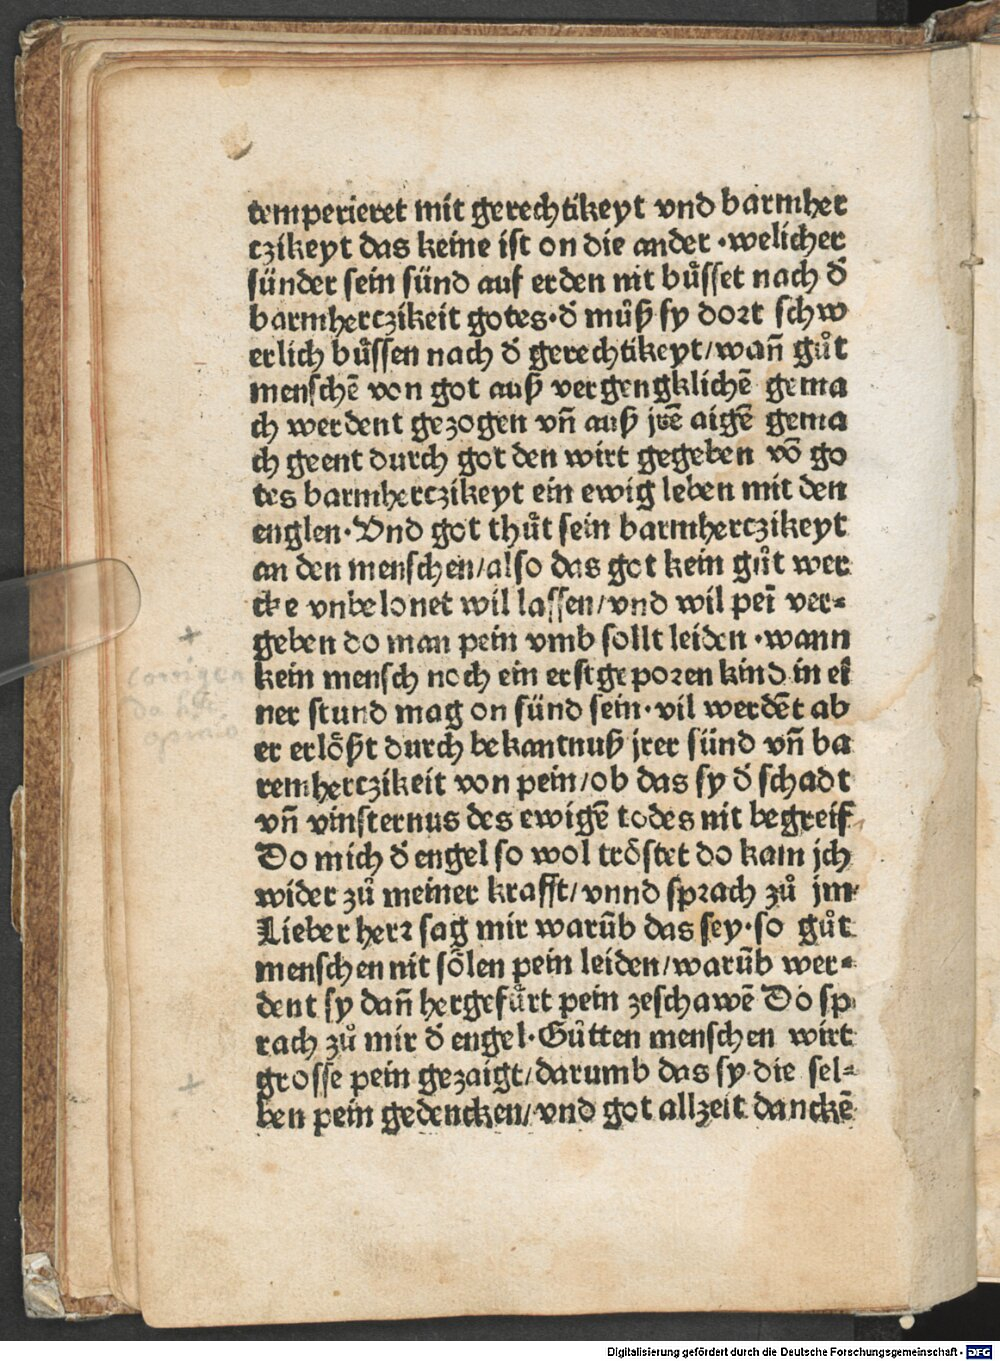 temperieret mit gerechtikeyt vnd barmher
czikeyt das keine ist on die ander ·welicher
sünder sein sünd auf erden nit bůsset nach d̄
barmherczikeit gotes·d̄ můß sy dort schw
erlich bůssen nach d̄ gerechtikeyt/wañ gůt
menschē von got auß vergengklichē gema
ch werdent gezogen vñ auß jrē aigē gema
ch geent durch got den wirt gegeben vō go
tes barmherczikeyt ein ewig leben mit den
englen·Vnd got thůt sein barmherczikeyt
an den menschen/also das got kein gůt wer
cke vnbelonet wil lassen/vnd wil peī ver=
geben do man pein vmb sollt leiden ·wann
kein mensch noch ein erstgeporen kind in ei
ner stund mag on sünd sein·vil werdēt ab
er erlößt durch bekantnuß jrer sünd vñ ba
remherczikeit von pein/ob das sy d̄ schadt
vñ vinsternus des ewigē todes nit begreif
Do mich d̄ engel so wol tröstet do kam jch
wider zů meiner krafft/vnnd sprach zů jm·
Lieber herr sag mir warūb das sey·so gůt
menschen nit sölen pein leiden/warūb wer=
dent sy dañ hergefůrt pein zeschawē Do sp
rach zů mir d̄ engel·Gůtten menschen wirt
grosse pein gezaigt/darumb das sy die sel=
ben pein gedencken/vnd got allzeit danckē
+
corrigen
da hec
opinio
+
Digitalisierung gefördert durch die Deutsche Forschungsgemeinschaft - DFG